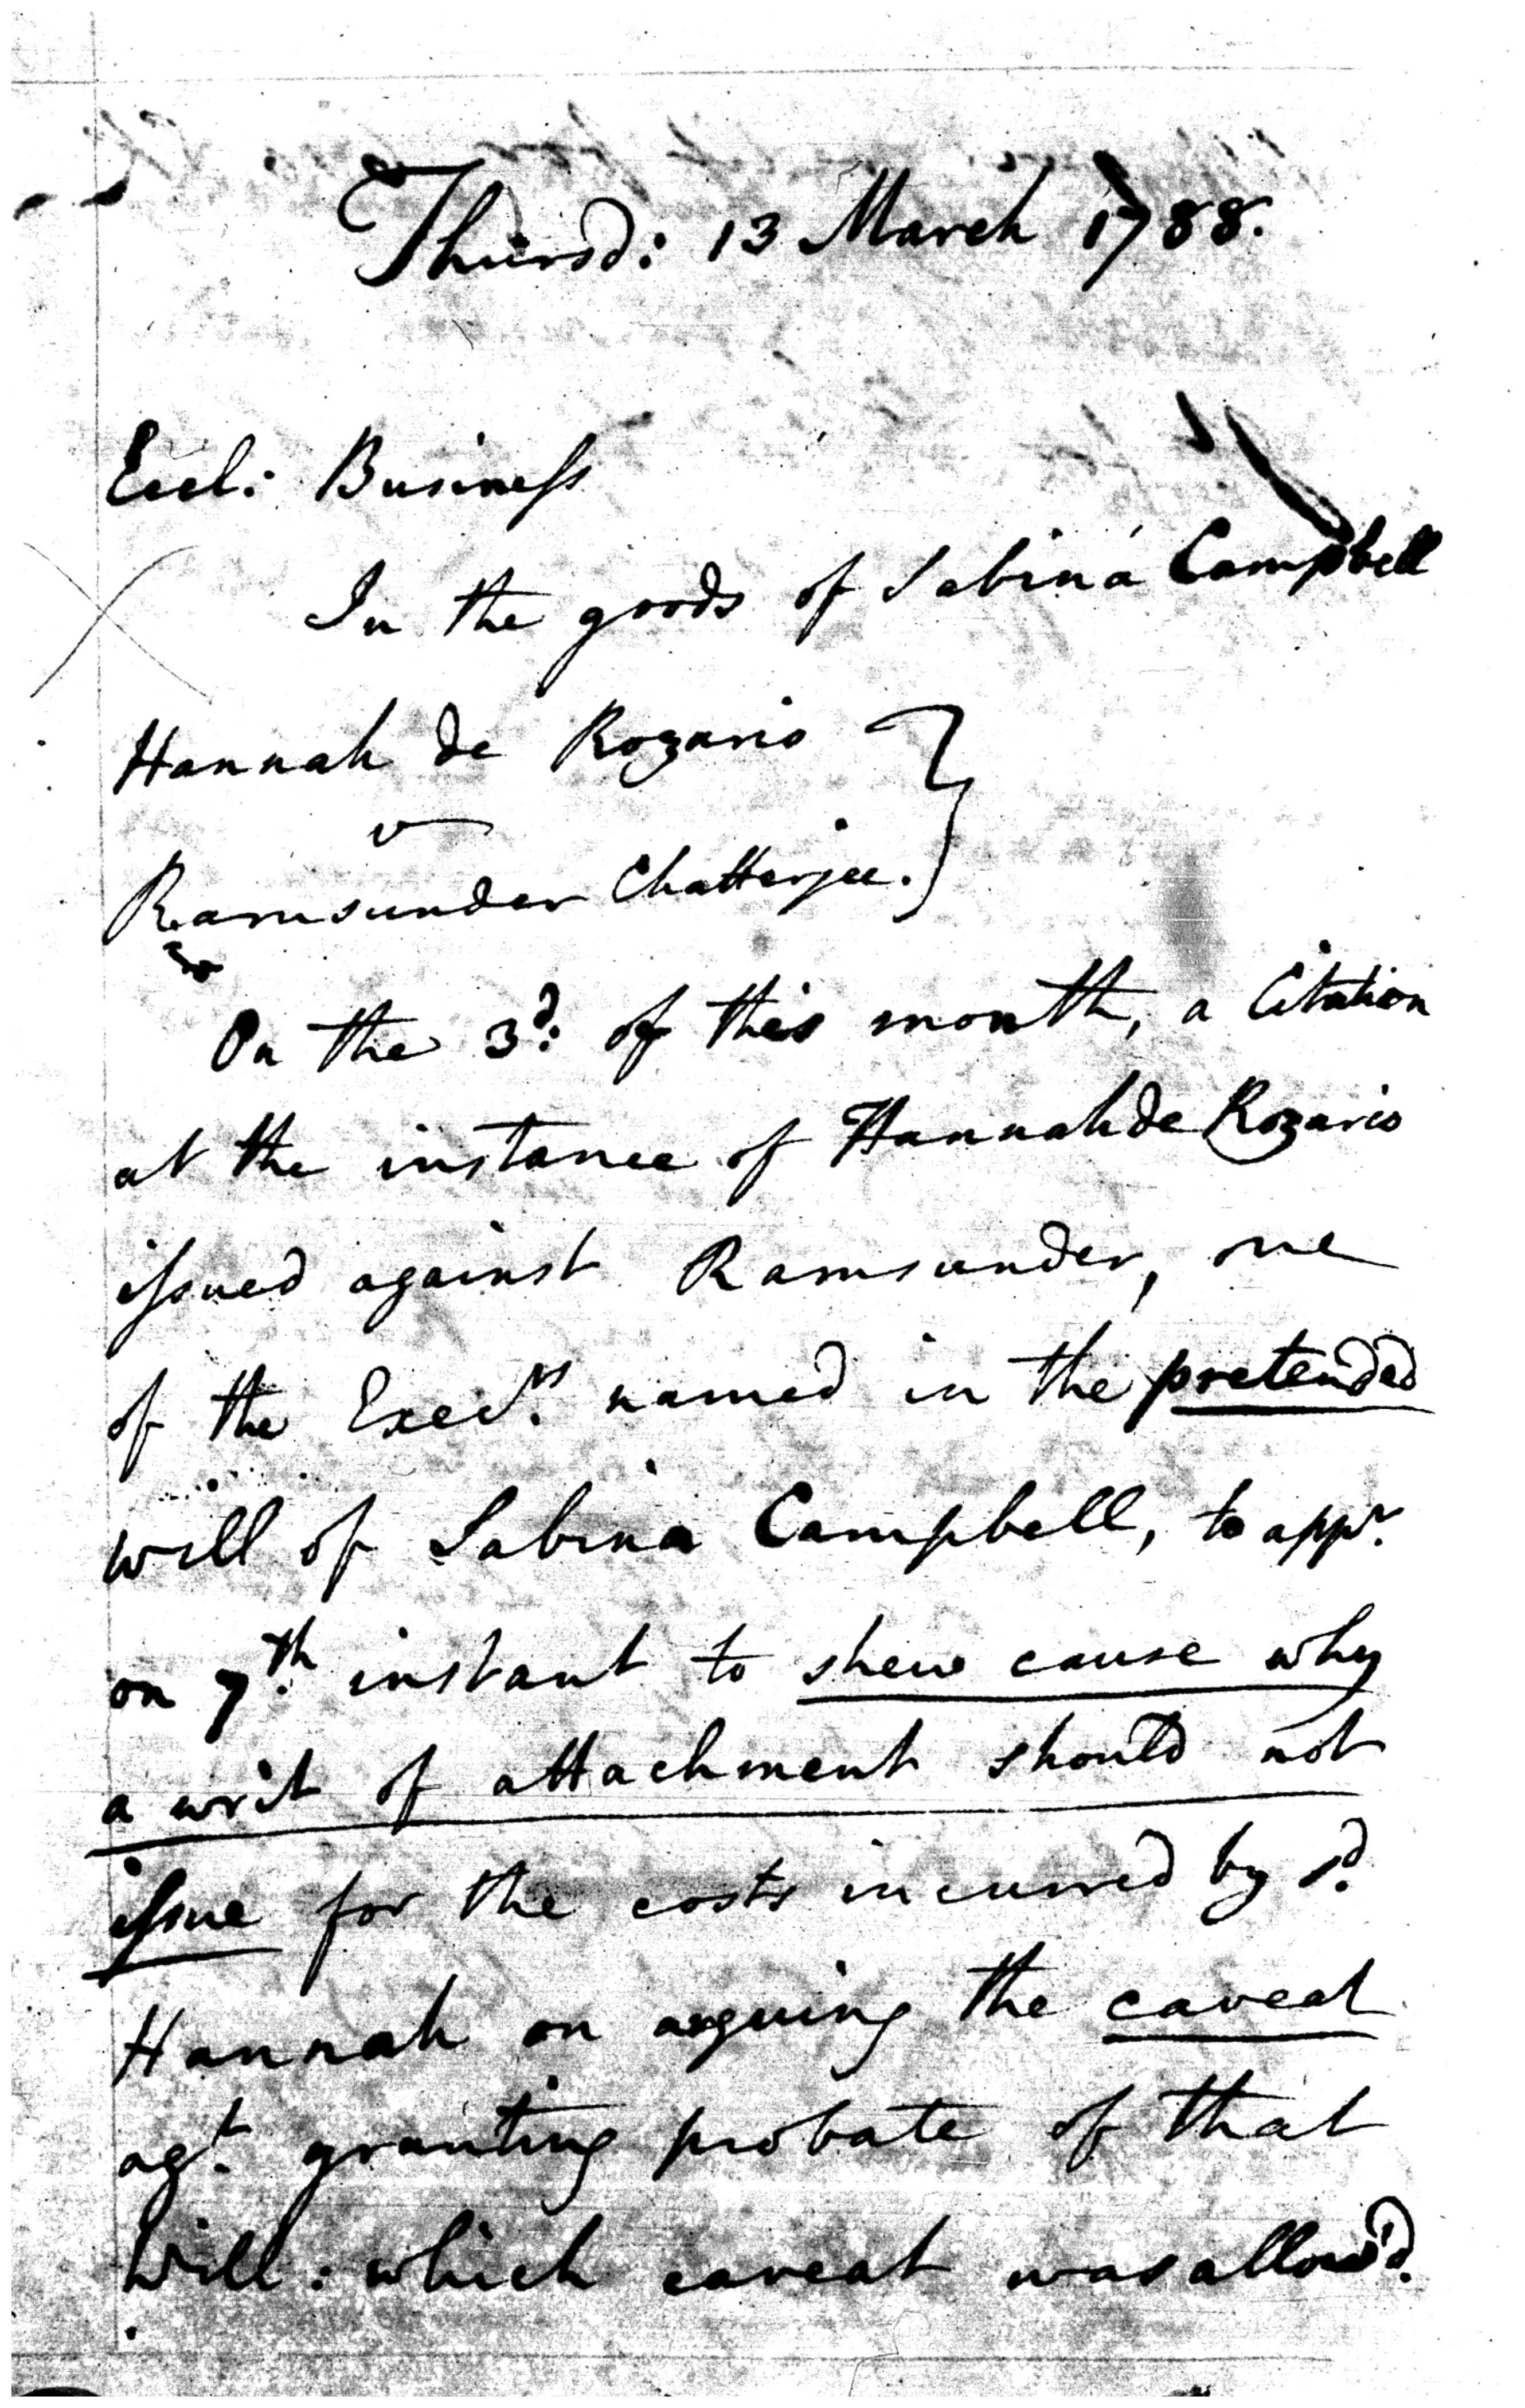 Thursd: 13 March 1788.
Eccl: Business
In the goods of Sabina Campbell
Hannah de Rozario
v
Ramsunder Chatterjee.
On the 3d: of this month, a Citation
at the instance of Hannah de Rozario
issued against Ramsunder, one
of the Execrs. named in the pretended
will of Sabina Campbell, to appr.
on 7th. instant to shew cause why
a writ of attachment should not
issue for the costs incurred by sd.
Hannah on arguing the caveat
agt. granting probate of that
Will: which caveat was allow'd.